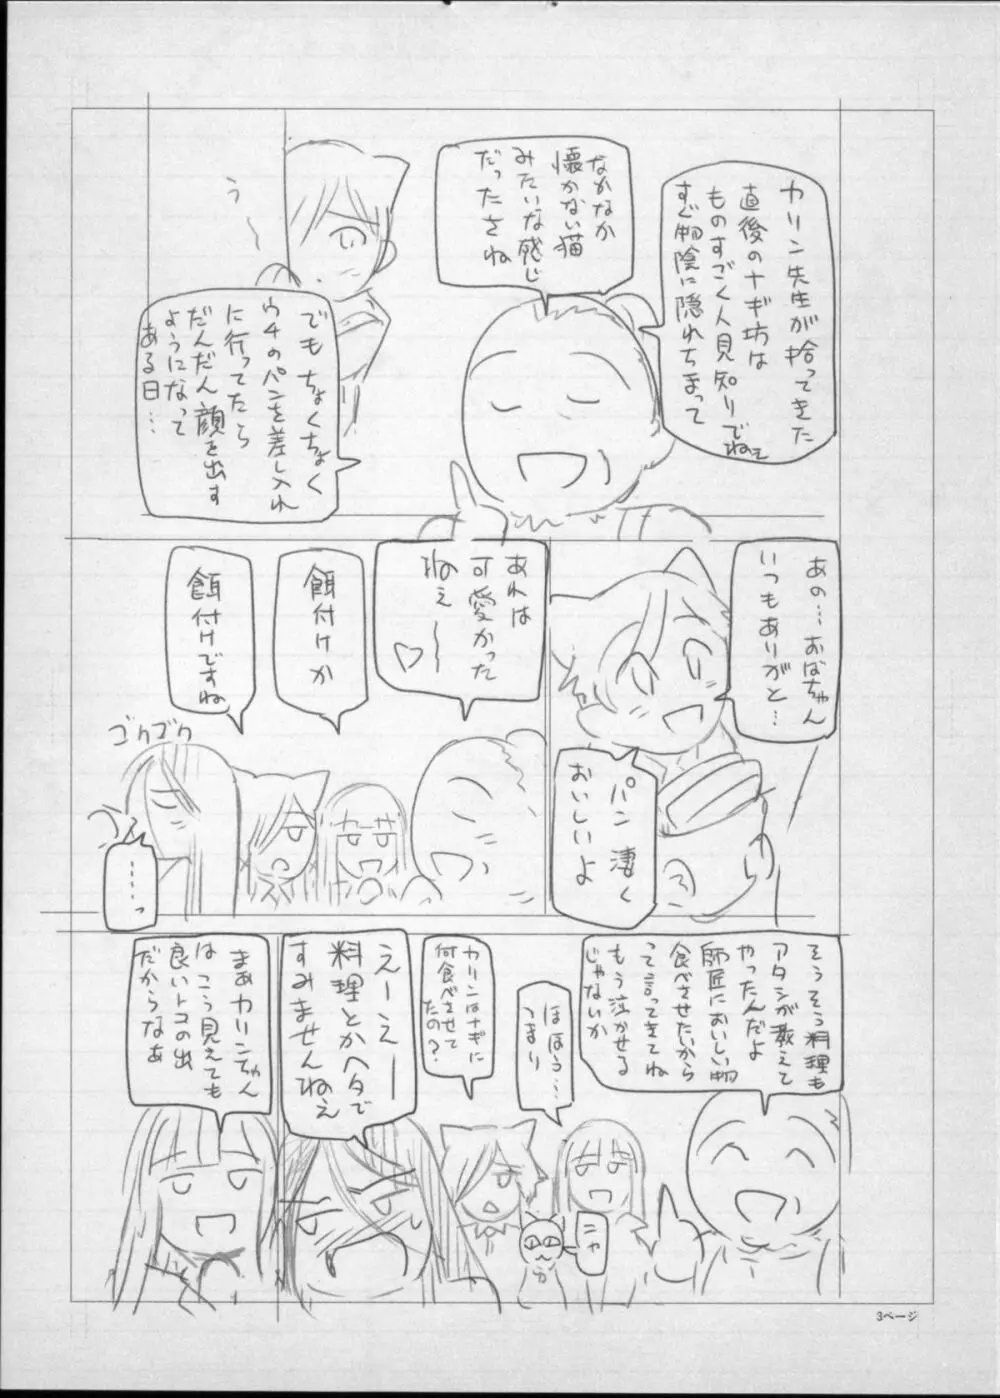 カリン先生が拾ってきた
直後のナギ坊は
ものすごく人見知りでねぇ
すぐ物陰に隠れちまって
なかなか
懐かない猫
みたいな感じ
だったさね
う〜
でもちょくちょく
ウチのパンを差し入れ
に行ってたら
だんだん顔を出す
ようになって
ある日…
あの…おばちゃん
いつもありがと…
パン凄く
おいしいよ
あれは
可愛かった
ねぇ〜
♡
餌付けか
餌付けですね
ゴクゴク
……っ
そうそう料理も
アタシが教えて
やったんだよ
師匠においしい物
食べさせたいから
って言ってきてね
もう泣かせる
じゃないか
ほほう…
つまり
カリンはナギに
何食べさせて
たの?
えーえー
料理とかヘタで
すみませんねぇ
まぁカリンちゃん
はこう見えても
良いトコの出
だからなぁ
ニャ
3ページ